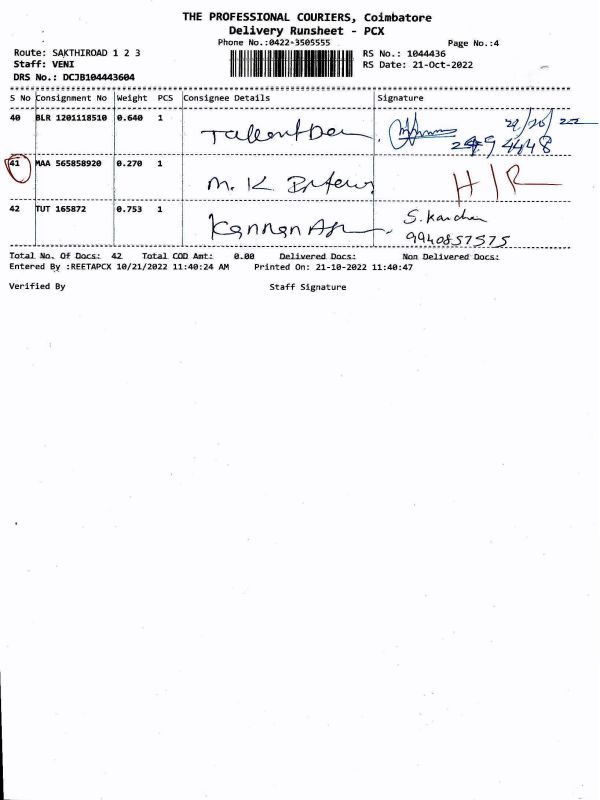 THE PROFESSIONAL COURIERS, Coimbatore
Delivery Runsheet - PCX
Phone No.:0422-3505555 Page No.:4
Route: SAKTHIROAD 1 2 3 RS No.: 1044436
Staff: VENI RS Date: 21-Oct-2022
DRS No.: DCJB104443604
S No Consignment No Weight PCS Consignee Details Signature
40 BLR 1201118510 0.640 1
41 MAA 565858920 0.270 1 M. K H/R
42 TUT 165872 0.753 1 Kannan
9940857575
Total No. Of Docs: 42 Total COD Amt: 0.00 Delivered Docs: Non Delivered Docs:
Entered By :REETAPCX 10/21/2022 11:40:24 AM Printed On: 21-10-2022 11:40:47
Verified By Staff Signature